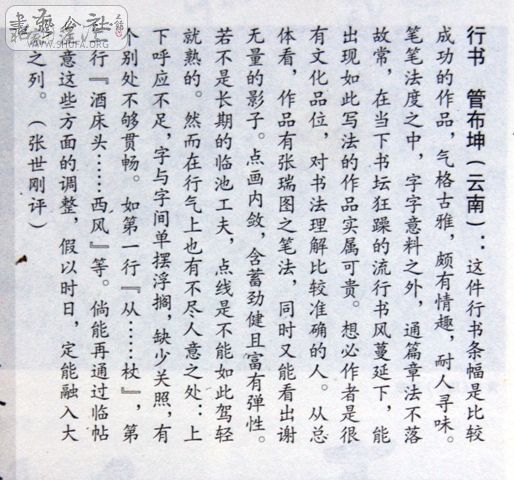 行书 管布坤(云南):这件行书条幅是比较
成功的作品,气格古雅,颇有情趣,耐人寻味。
笔笔法度之中,字字意料之外,通篇章法不落
故常,在当下书坛狂躁的流行书风蔓延下,能
出现如此写法的作品实属可贵。想必作者是很
有文化品位,对书法理解比较准确的人。从总
体看,作品有张瑞图之笔法,同时又能看出谢
无量的影子。点画内敛,含蓄劲健且富有弹性。
若不是长期的临池工夫,点线是不能如此驾轻
就熟的。然而在行气上也有不尽人意之处:上
下呼应不足,字与字间单摆浮搁,缺少关照,有
个别处不够贯畅。如第一行『从……杖』,第
行『酒床头……西风』等。倘能再通过临帖
意这些方面的调整,假以时日,定能融入大
之列。(张世刚评)
WWW.SHUFA.ORG